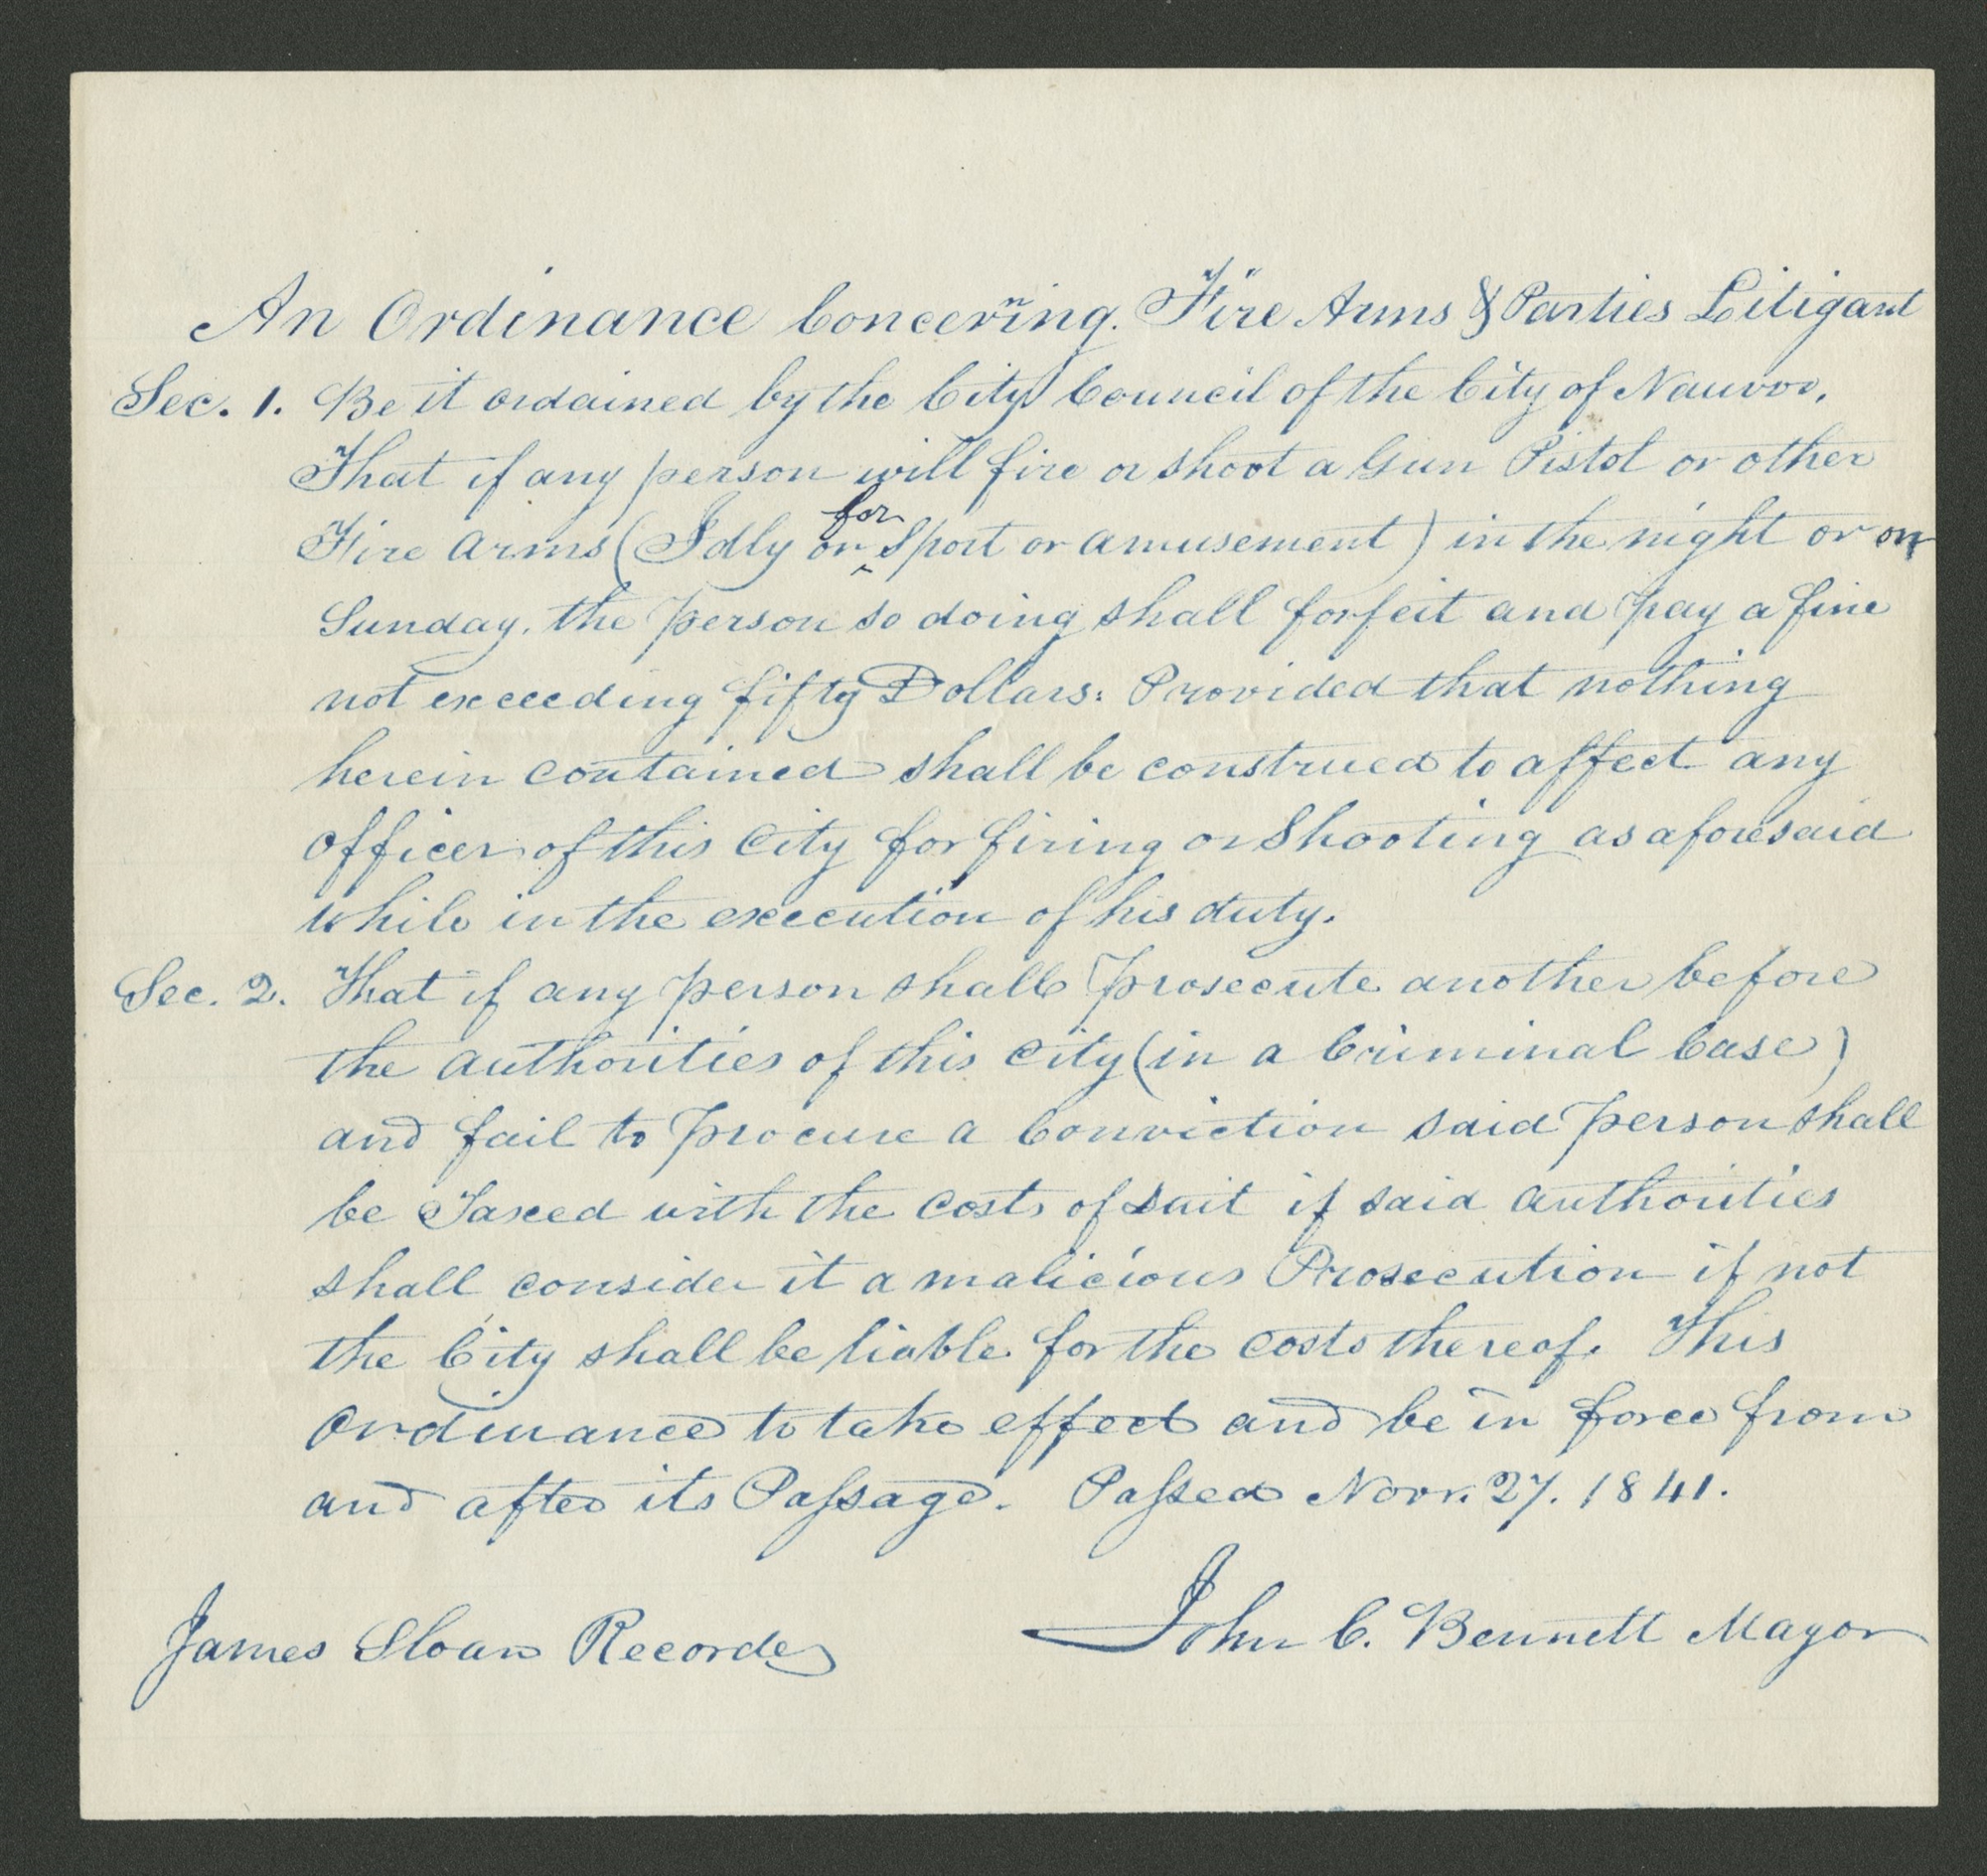 An Ordinance Concerning. Fire Arms & Parties Litigant
Sec. 1. Be it ordained by the City Council of the City of Nauvoo,
That if any person will fire or shoot a Gun Pistol or other
Fire arms (Idly or for Sport or amusement) in the night or on
Sunday, the person so doing shall forfeit and pay a fine
not exceeding fifty Dollars: Provided that nothing
herein contained shall be construed to affect any
officer of this City for firing or Shooting as aforesaid
while in the execution of his duty.
Sec. 2. That if any person shall prosecute another before
the authorities of this City (in a Criminal Case)
and fail to procure a Conviction said person shall
be Taxed with the costs of suit if said authorities
shall consider it a malicious Prosecution if not
the City shall be liable for the costs thereof. This
Ordinance to take effect and be in force from
and after its Passage. Passed Novr. 27. 1841.
James Sloan Recorder
John C. Bennett Mayor